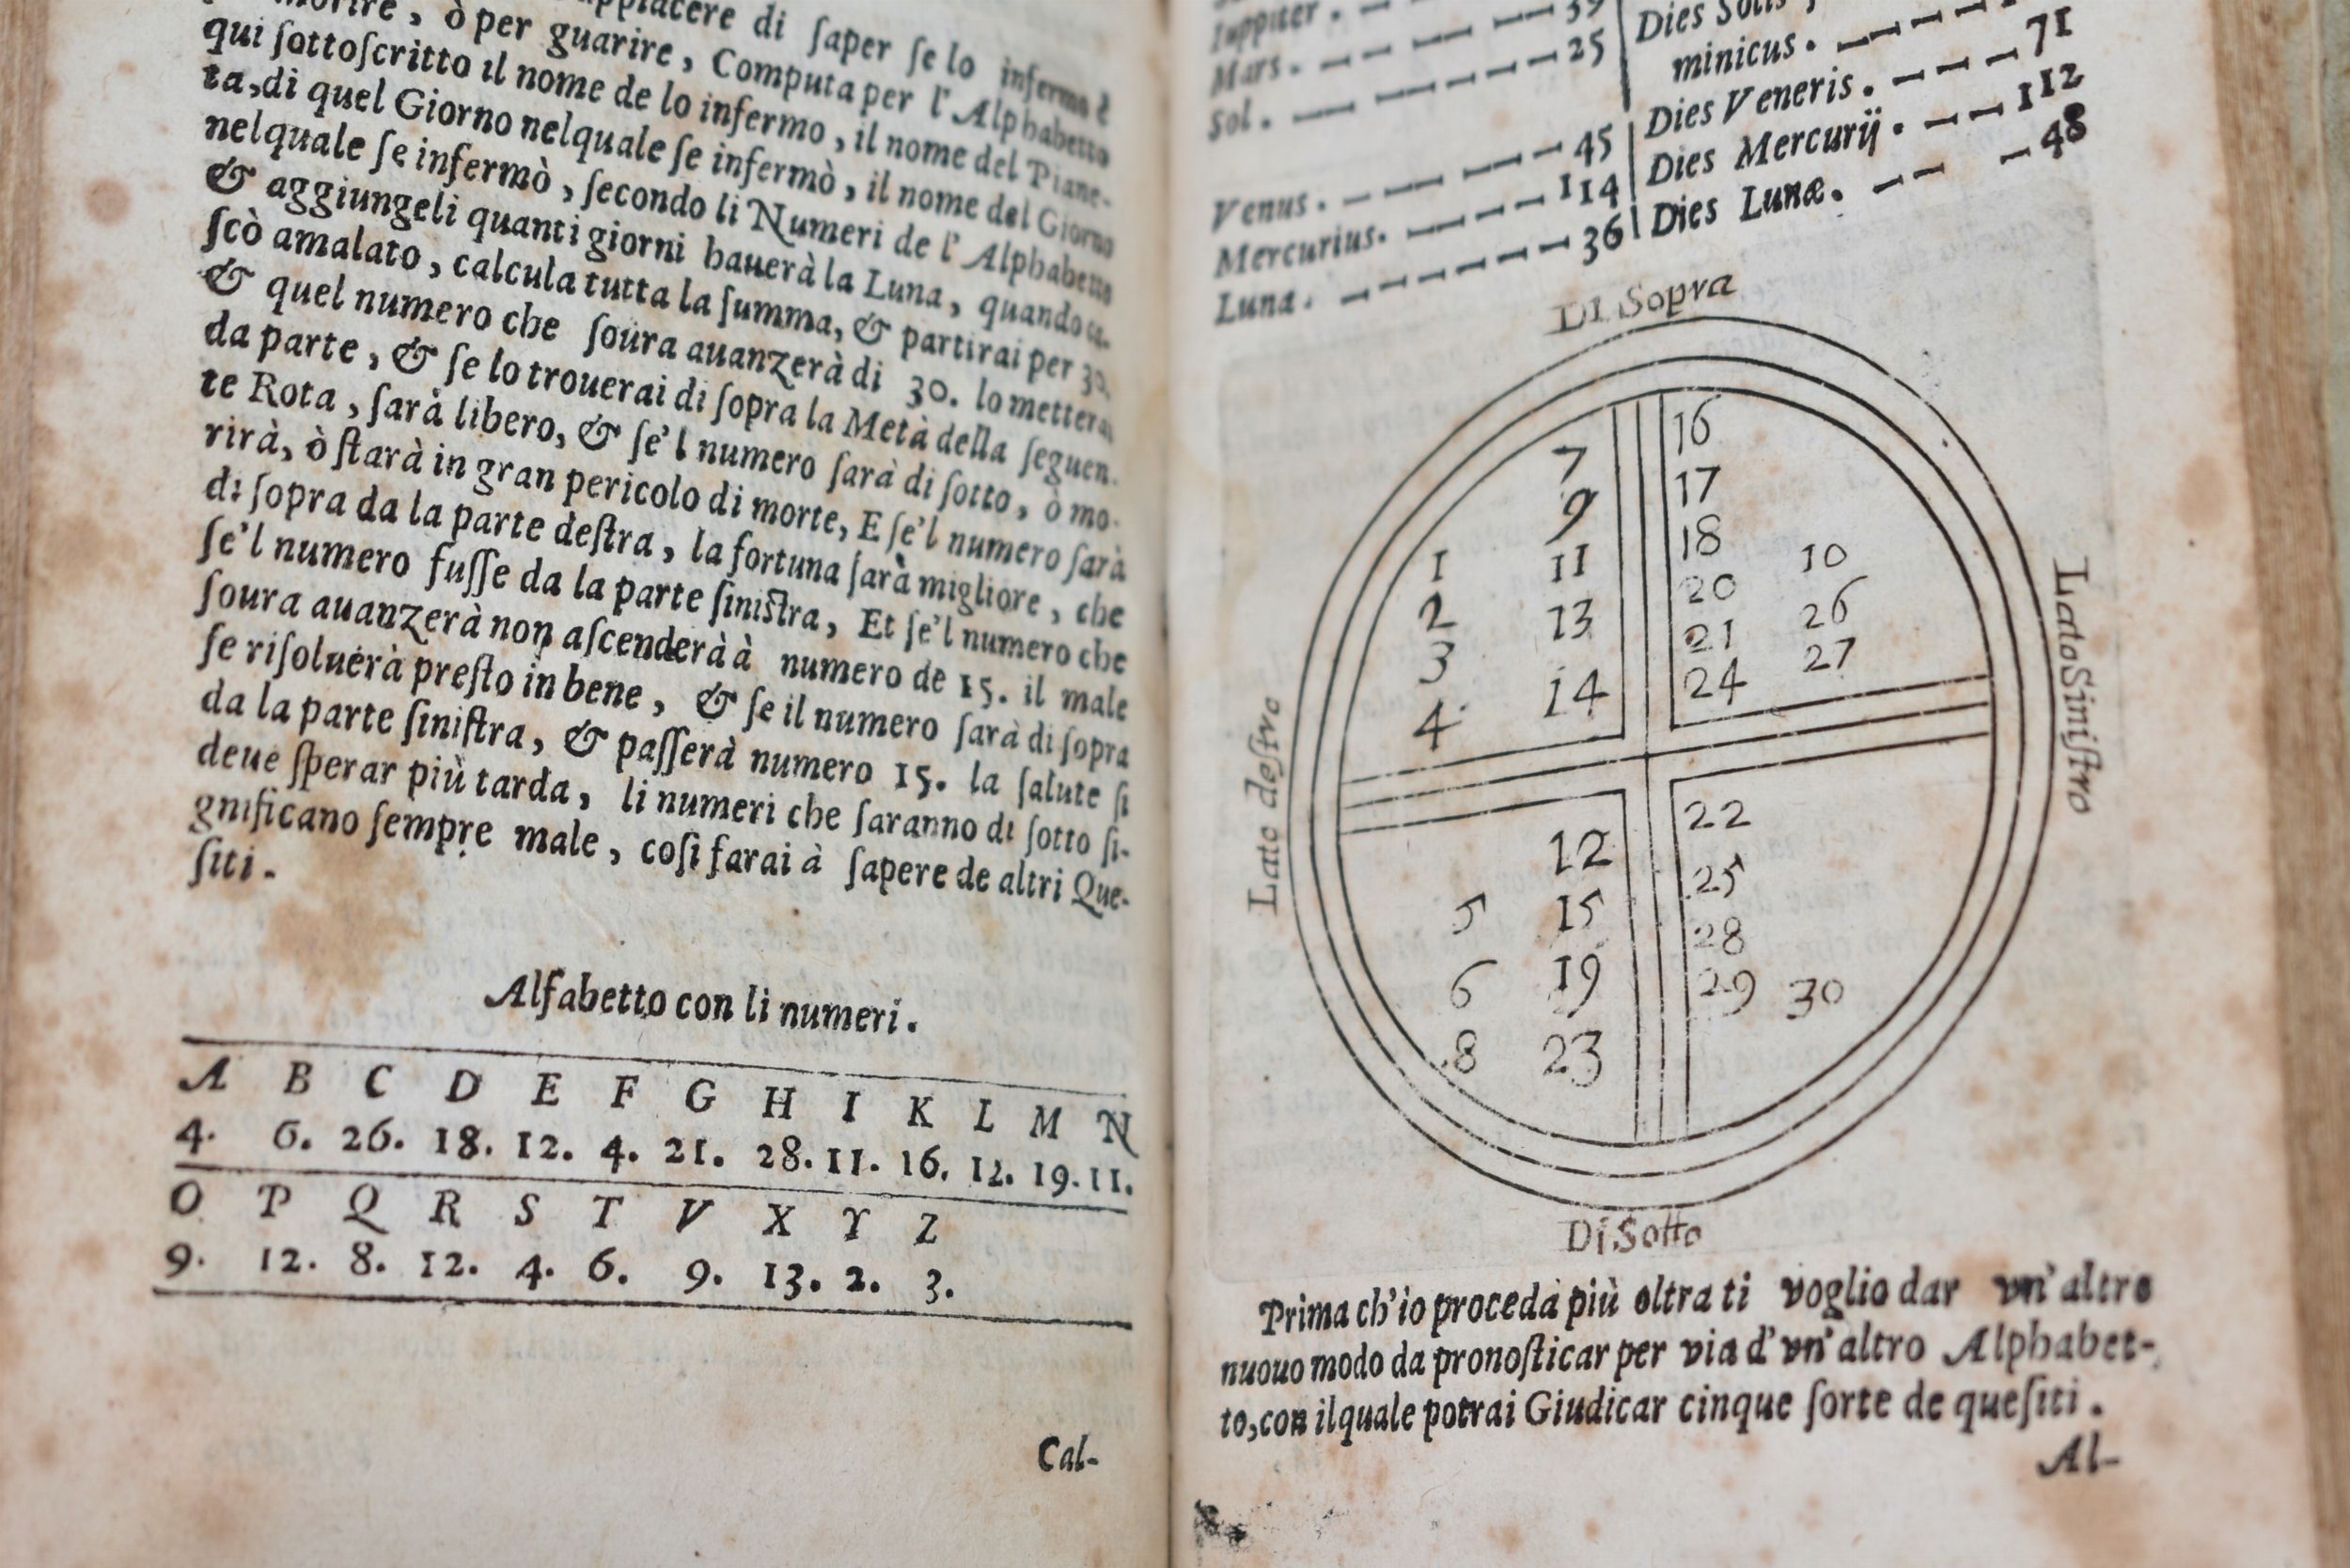 morire, ò per guarire, Computa per l'Alphabetto
piacere di ſaper ſe lo infermo è
qui ſottoſcritto il nome de lo infermo, il nome del Piane-
ta, di quel Giorno nelquale ſe infermò, il nome del Giorno
nelquale ſe infermò, ſecondo li Numeri de l'Alphabetto
& aggiungeli quanti giorni hauerà la Luna, quando ca-
ſcò amalato, calcula tutta la ſumma, & partirai per 30.
& quel numero che ſoura auanzerà di 30. lo metterai
da parte, & ſe lo trouerai di ſopra la Metà della ſeguen-
te Rota, ſarà libero, & ſe'l numero ſarà di ſotto, ò mo-
rirà, ò ſtarà in gran pericolo di morte, E ſe'l numero ſarà
di ſopra da la parte deſtra, la fortuna ſarà migliore, che
ſe'l numero fuſſe da la parte ſiniſtra, Et ſe'l numero che
ſoura auanzerà non aſcenderà à numero de 15. il male
ſe riſoluerà preſto in bene, & ſe il numero ſarà di ſopra
da la parte ſiniſtra, & paſſerà numero 15. la ſalute ſi
deue ſperar più tarda, li numeri che ſaranno di ſotto ſi-
gnificano ſempre male, coſi farai à ſapere de altri Que-
ſiti.
Alfabetto con li numeri.
A B C D E F G H I K L M N
4. 6. 26. 18. 12. 4. 21. 28. 11. 16. 12. 19. 11.
O P Q R S T V X Y Z
9. 12. 8. 12. 4. 6. 9. 13. 2. 3.
Cal-
Iuppiter.
Mars. 39
Sol. 25
Venus. 45
Mercurius. 114
Luna. 36
Dies Solis
minicus.
Dies Veneris. 71
Dies Mercurij. 112
Dies Lunæ. 48
Di Sopra
Lato deſtro
Lato Siniſtro
7 16
9 17
1 11 18 10
2 13 20 26
3 21 27
4 14 24
12 22
5 15 25
6 19 28
29 30
8 23
Di Sotto
Prima ch'io proceda più oltra ti voglio dar vn'altro
nuouo modo da pronoſticar per via d'vn'altro Alphabet-
to, con ilquale potrai Giudicar cinque ſorte de queſiti.
Al-